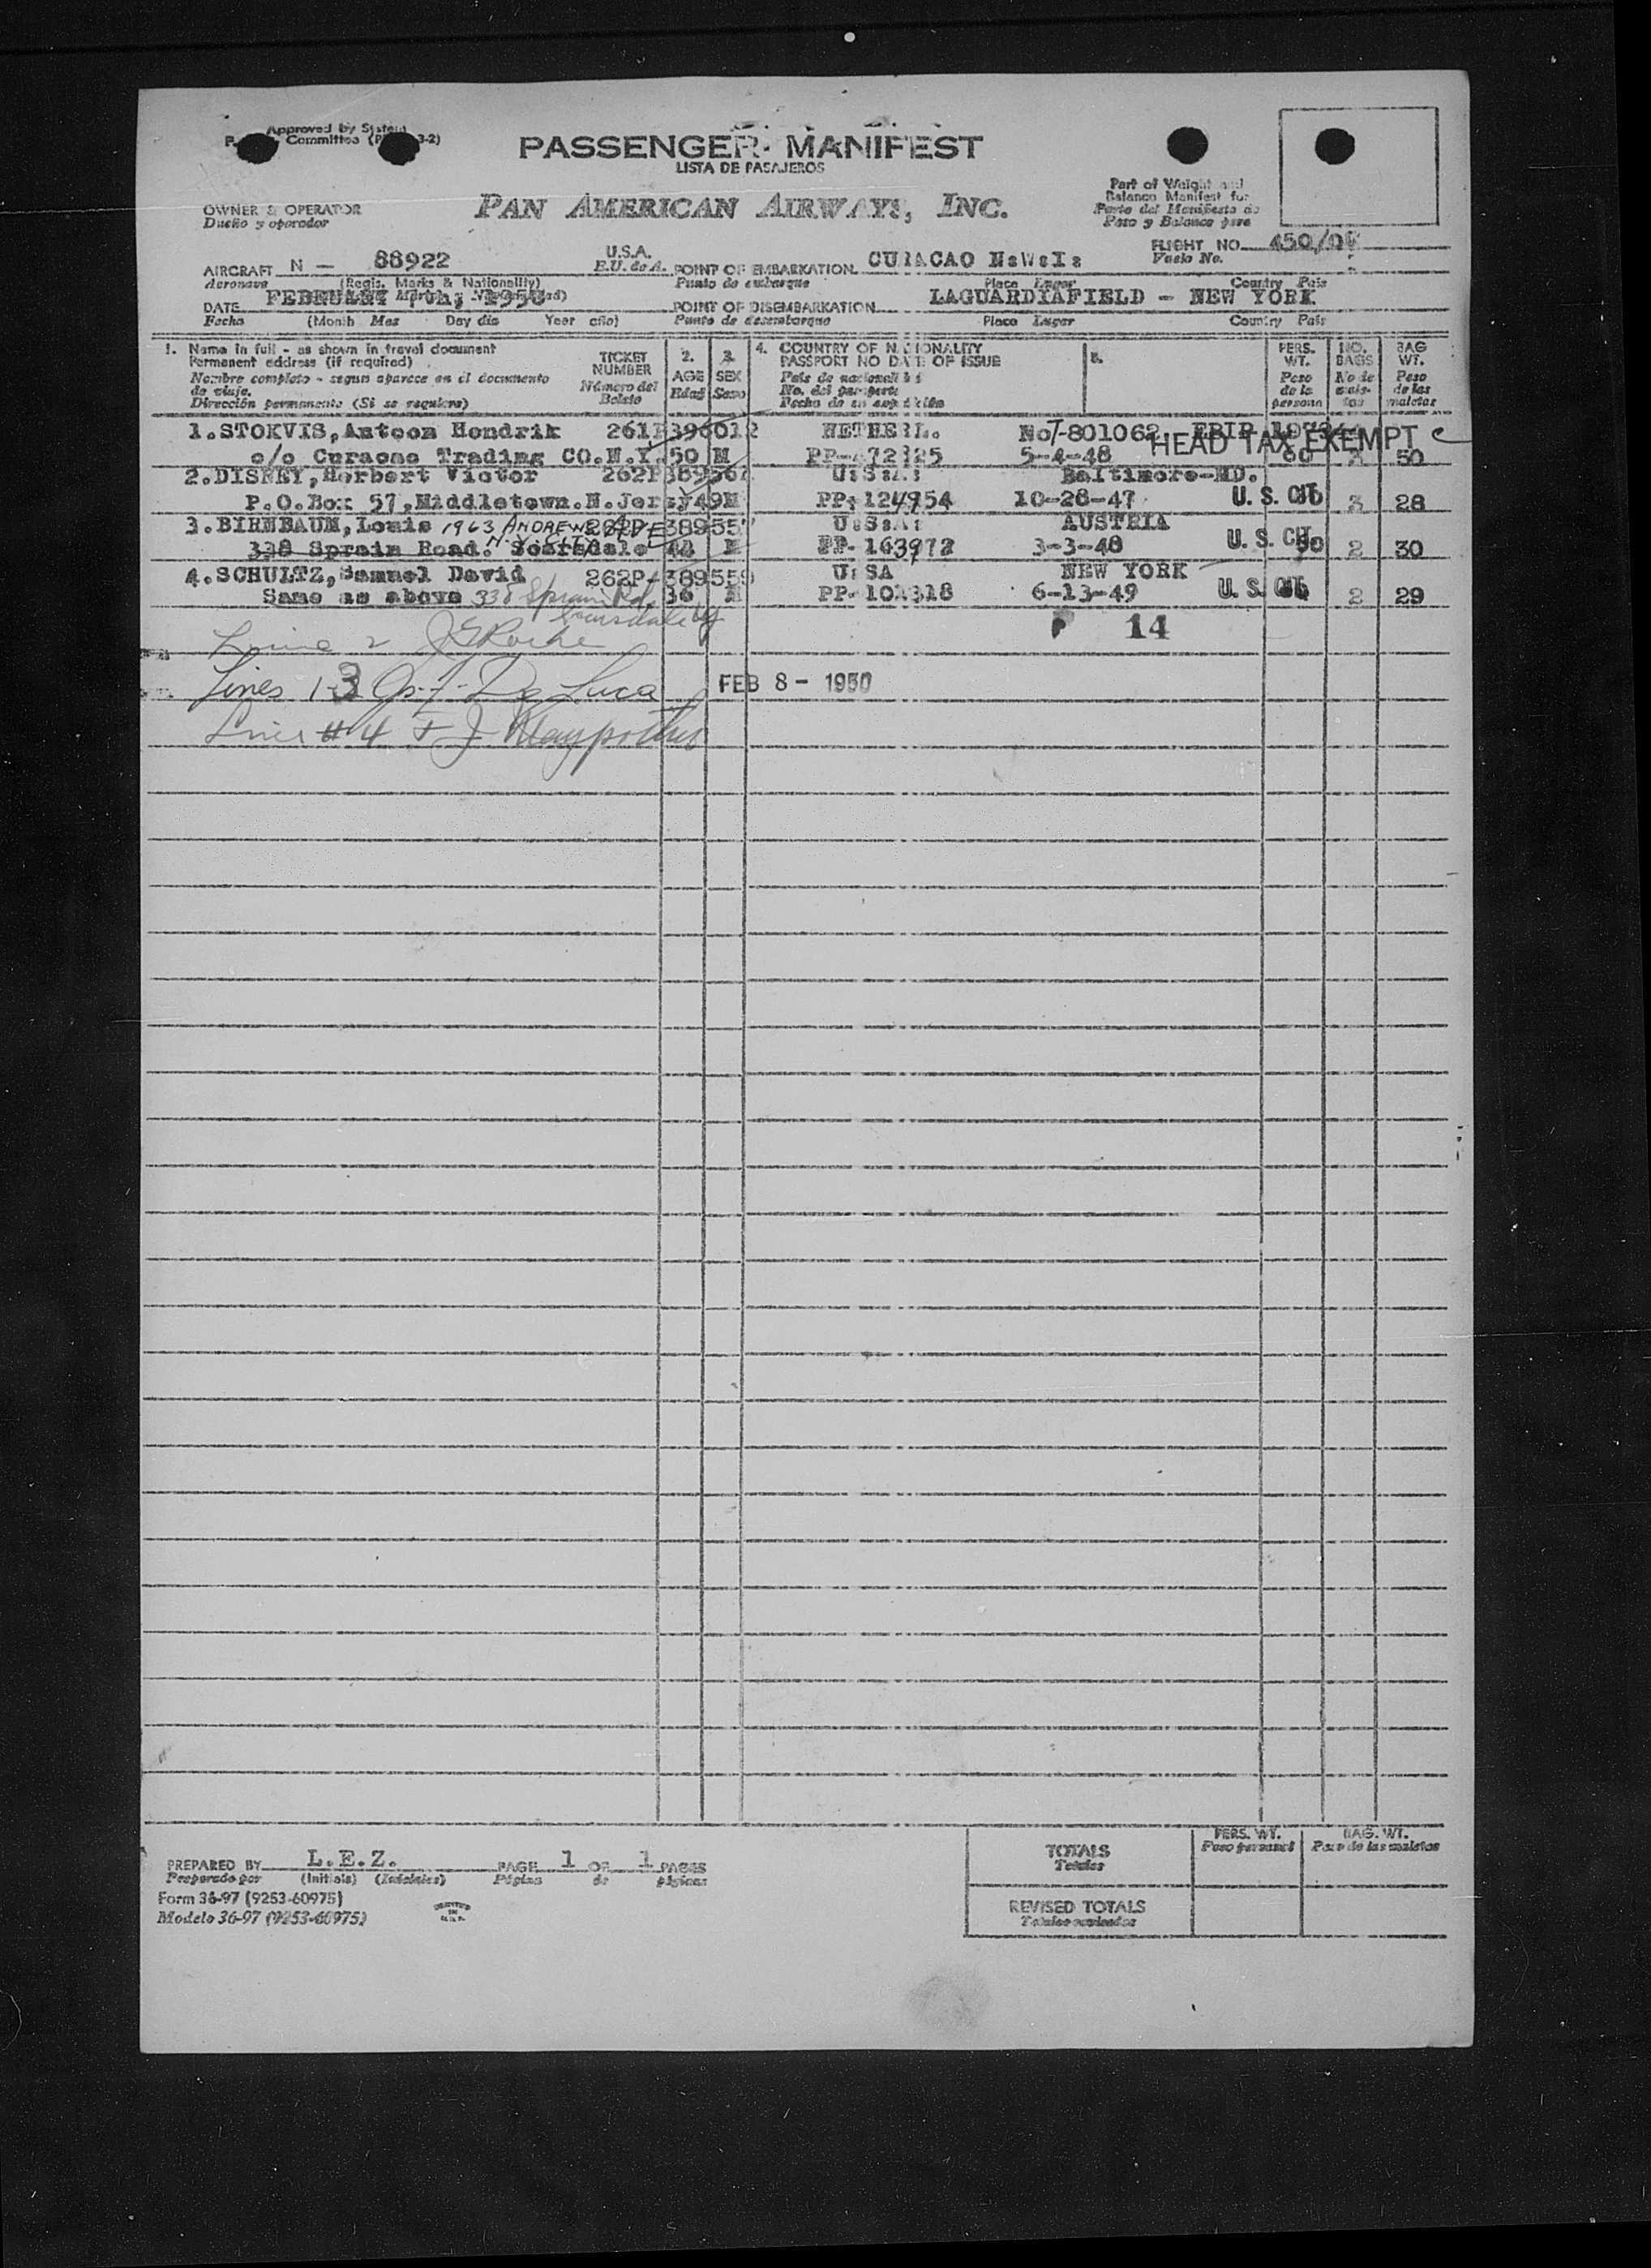 Approved by System
Committee 3-2)
PASSENGER MANIFEST
LISTA DE PASAJEROS
OWNER & OPERATOR
Dueño y operador
PAN AMERICAN AIRWAYS, INC.
Part of Weight and
Balance Manifest for
Parte del Manifiesto de
Peso y Balance para
AIRCRAFT N - 88922 U.S.A.
Aeronave (Regis. Marks & Nationality) E.U. de A.
POINT OF EMBARKATION CURACAO N.W.I.
Punto de embarque Place Lugar Country Pais
FLIGHT NO. 450/
Vuelo No.
DATE FEBRUARY 1950
Fecha (Month Mes Day dia Year año)
POINT OF DISEMBARKATION LAGUARDIAFIELD - NEW YORK
Punto de desembarque Place Lugar Country Pais
1. Name in full - as shown in travel document
Permanent address (if required)
Nombre completo - segun aparece en el documento
de viaje.
Dirección permanente (Si se requiere)
TICKET
NUMBER
Número del
Boleto
2.
AGE
Edad
3.
SEX
Sexo
4. COUNTRY OF NATIONALITY
PASSPORT NO DATE OF ISSUE
Pais de nacionalidad
No. del pasaporte
Fecha de su expedición
5.
PERS.
WT.
Peso
de la
persona
NO.
BAGS
No de
male-
tas
BAG
WT.
Peso
de las
maletas
1.STOKVIS,Antoon Hendrik 261P396012 NETHERL. No T-801062 HEAD TAX EXEMPT
c/o Curacao Trading CO.N.Y. 50 M 5-4-48 50
2.DISNEY,Herbert Victor U:S:A: Baltimore-MD.
P.O.Box 57,Middletown.N.Jersy 49M PP-124954 10-28-47 U. S. CIT 3 28
3.BIRNBAUM,Louis 1963 ANDREWS AVE U:S:A: AUSTRIA
N.Y. CITY
338 Sprain Road. Scarsdale PP-163972 3-3-48 U. S. CIT 2 30
4.SCHULTZ,Samuel David 262P-389559 U:SA NEW YORK
Same as above 338 Sprain Rd. 36 M 6-13-49 U. S. CIT 2 29
Scarsdale NY
P 14
Line 2 J Roche
Lines 1-3 De Luca
FEB 8 - 1950
Line #4
PREPARED BY L.E.Z. PAGE 1 OF 1 PAGES
Preparado por (Initials) (Iniciales) Página de páginas
Form 36-97 (9253-60975)
Modelo 36-97 (9253-60975)
PRINTED
IN
U.S.A.
PERS. WT.
Peso personal
BAG. WT.
Peso de las maletas
TOTALS
Totales
REVISED TOTALS
Totales revisados